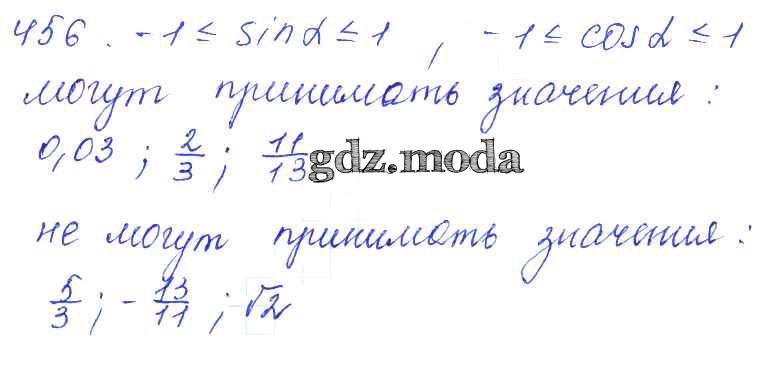 456. -1 ≤ sinα ≤ 1, -1 ≤ cosα ≤ 1
могут принимать значения:
0,03; 2/3; 11/13 gdz.moda
не могут принимать значения:
5/3; -13/11; √2